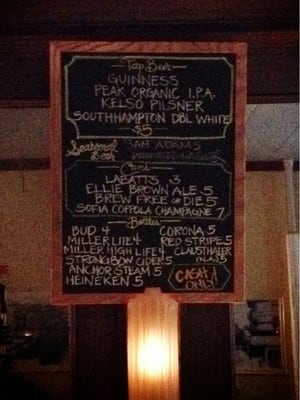 Tap Beer
GUINNESS
PEAK ORGANIC I.P.A.
KELSO PILSNER
SOUTHHAMPTON DBL WHITE
$5
Seasonal Beer
SAM ADAMS
Cans
LABATTS 3
ELLIE BROWN ALE 5
BREW FREE OR DIE 5
SOFIA COPPOLA CHAMPAGNE 7
Bottles
BUD 4
MILLER LITE 4
MILLER HIGH LIFE 4
STRONGBOW CIDER 5
ANCHOR STEAM 5
HEINEKEN 5
CORONA 5
RED STRIPE 5
CLAUSTHALER
(N.A.) 5
CASH
ONLY!